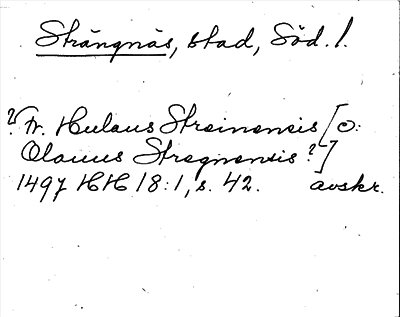 Strängnäs, stad, Söd. l.
? Fr. Hulaus Streinensis [o:
Olauus Stregnensis ?]
1497 HH 18:1, s. 42. avskr.